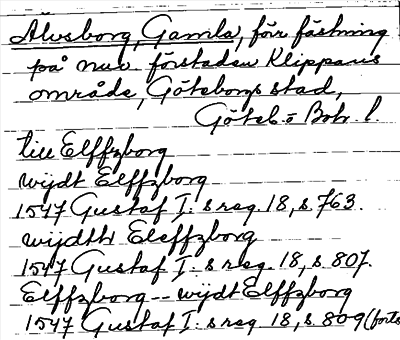 Älvsborg, Gamla, förr fästning
på nuv. förstaden Klippans
område, Göteborgs stad,
Göteb. o Boh. l.
till Elffzborg
wijdt Elffzborg
1547 Gustaf I:s reg. 18, s. 763.
wijdth Eleffzborg
1547 Gustaf I:s reg. 18, s. 807.
Elffzborg -- wijdt Elffzborg
1547 Gustaf I:s reg. 18, s. 809 (forts